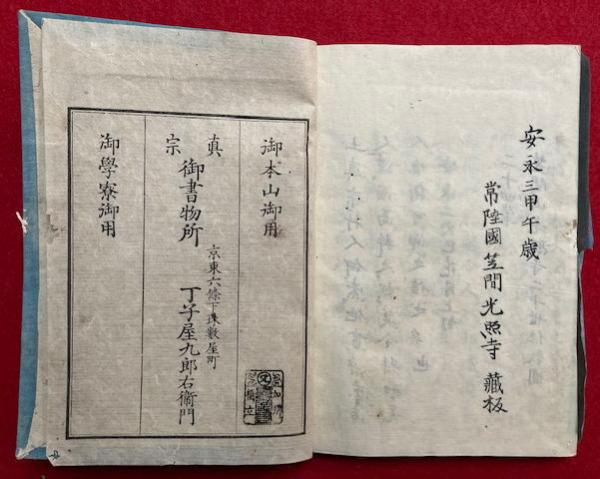 安永三甲午歳
常陸國笠間光照寺藏板
御本山御用
真宗
御書物所
京東六條下珠數屋町
丁子屋九郎右衞門
御學寮御用